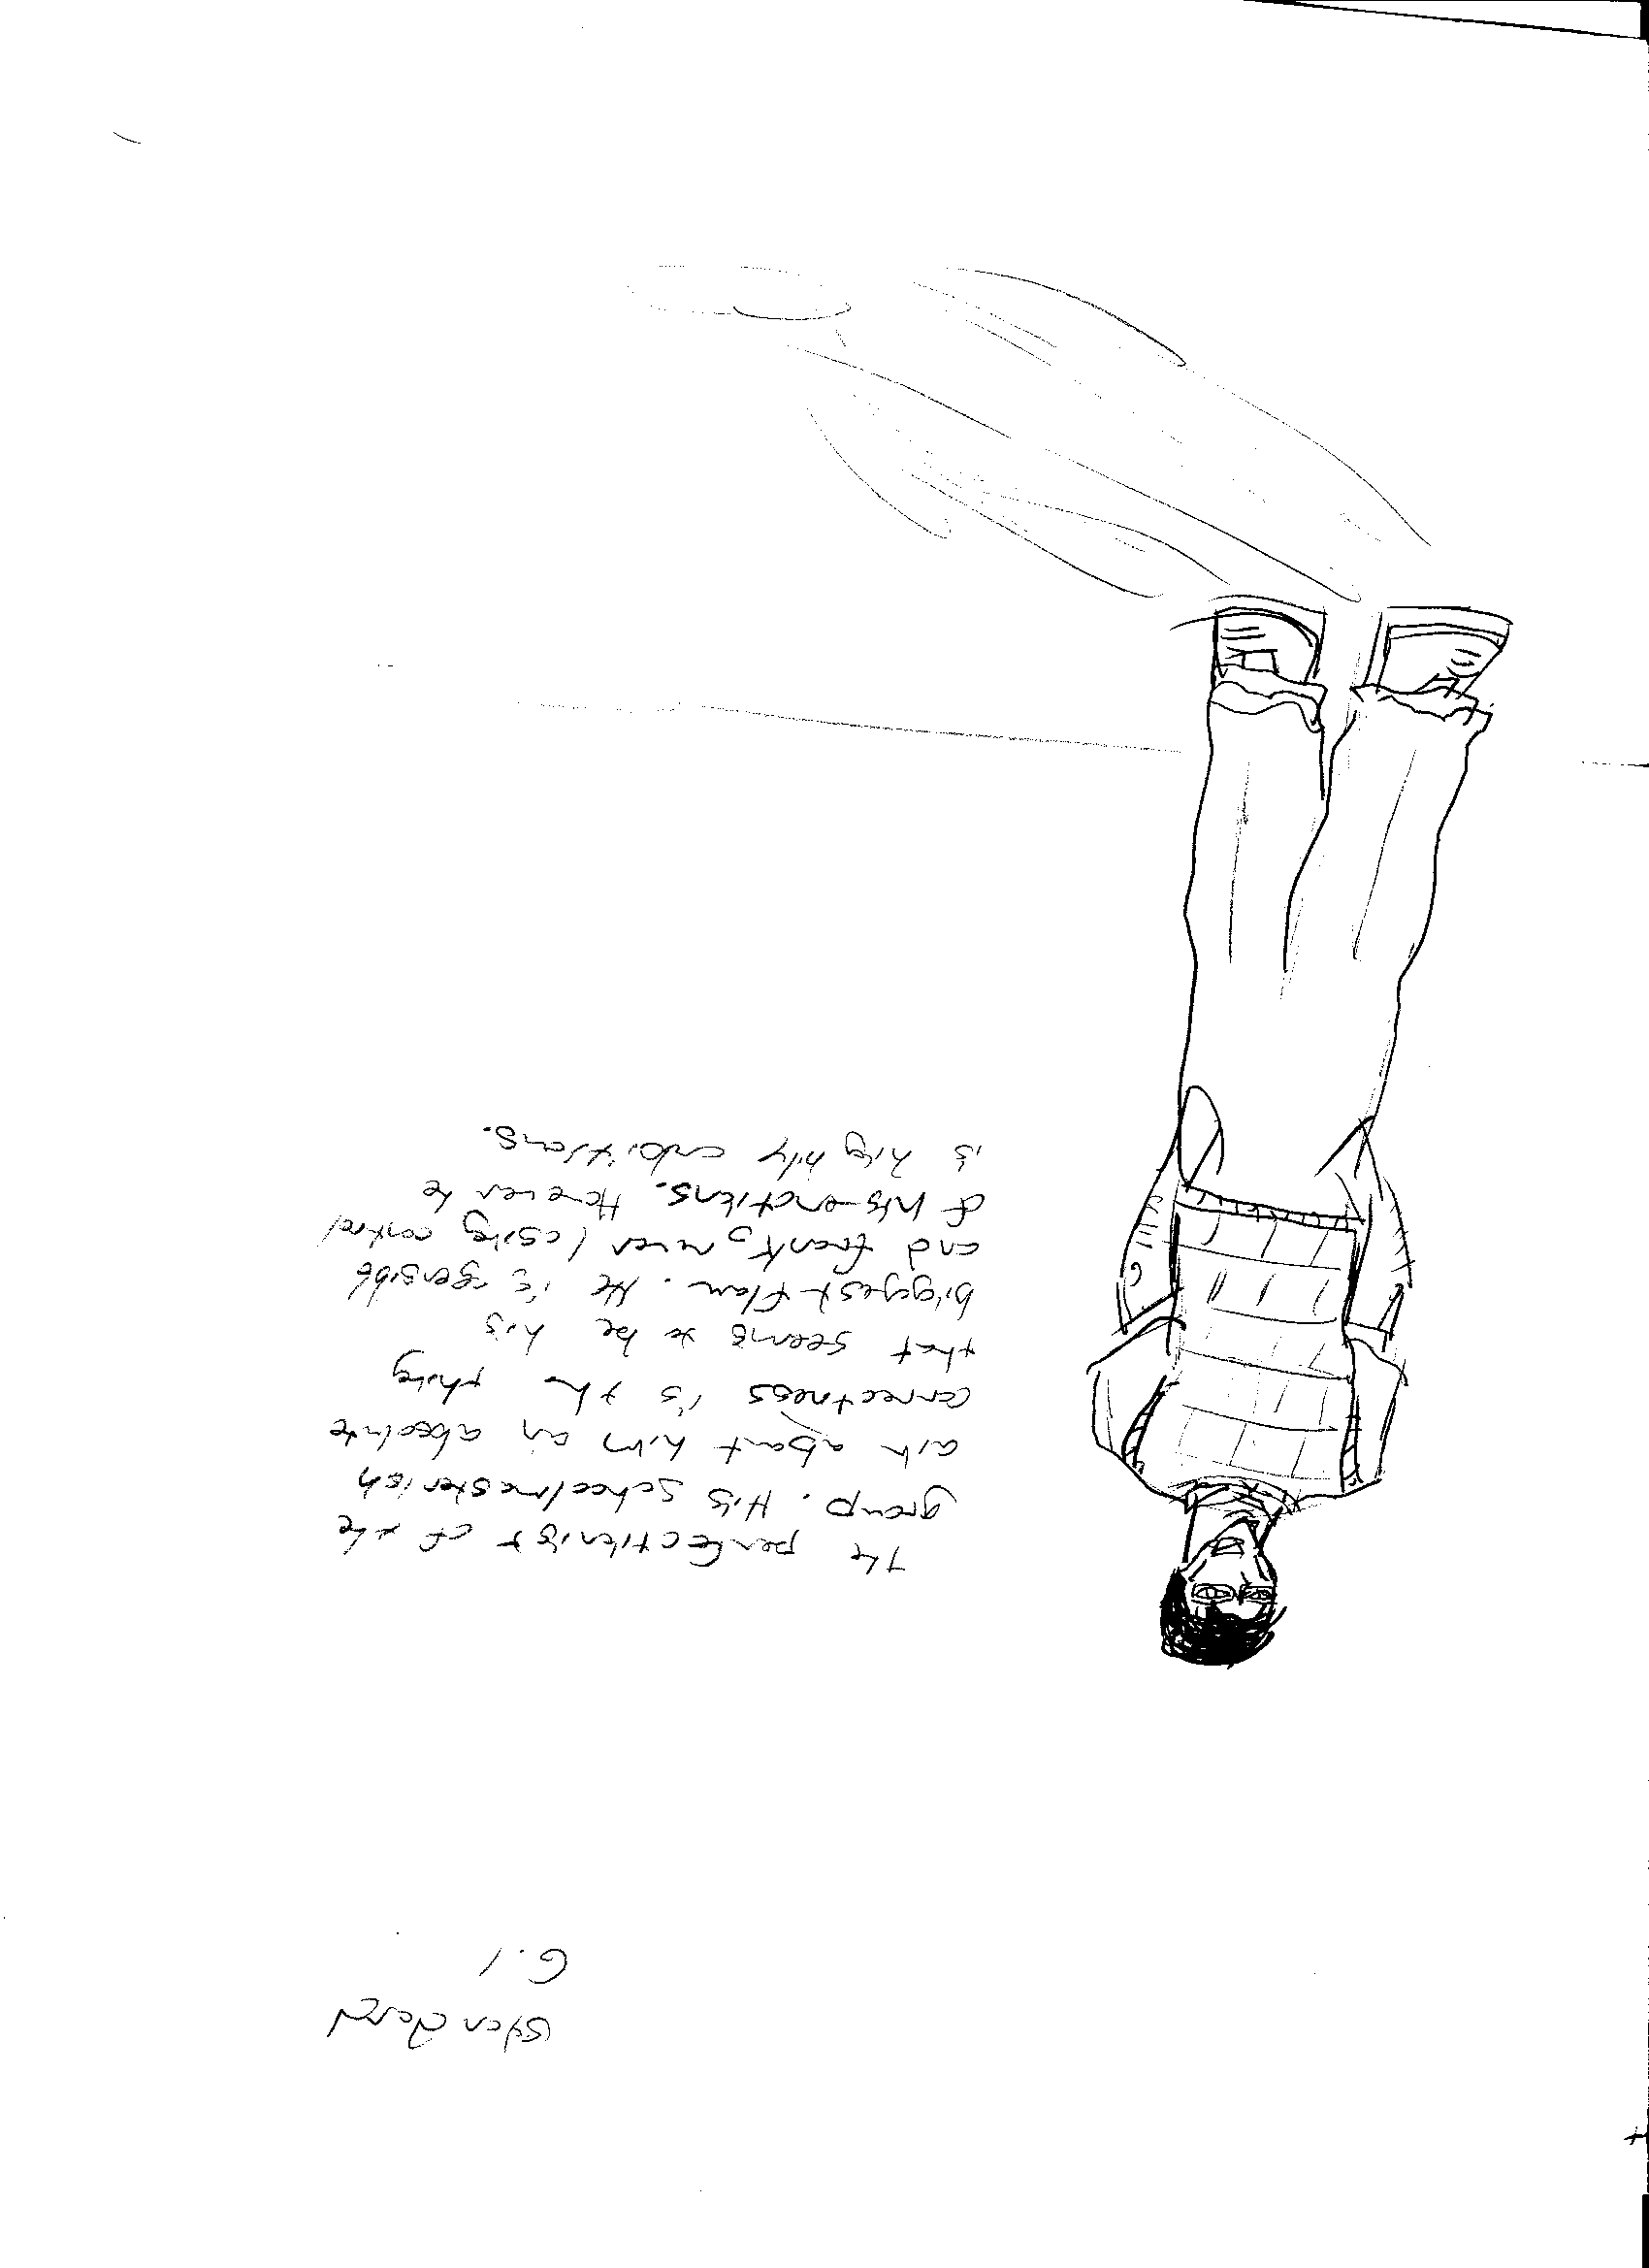 Standard
G.1
The perfectionist of the
group. His schoolmasterish
air about him an absolute
correctness is the thing
that seems to be his
biggest flaw. He is sensible
and frank, never losing control
of his emotions. However he
is highly ambitious.